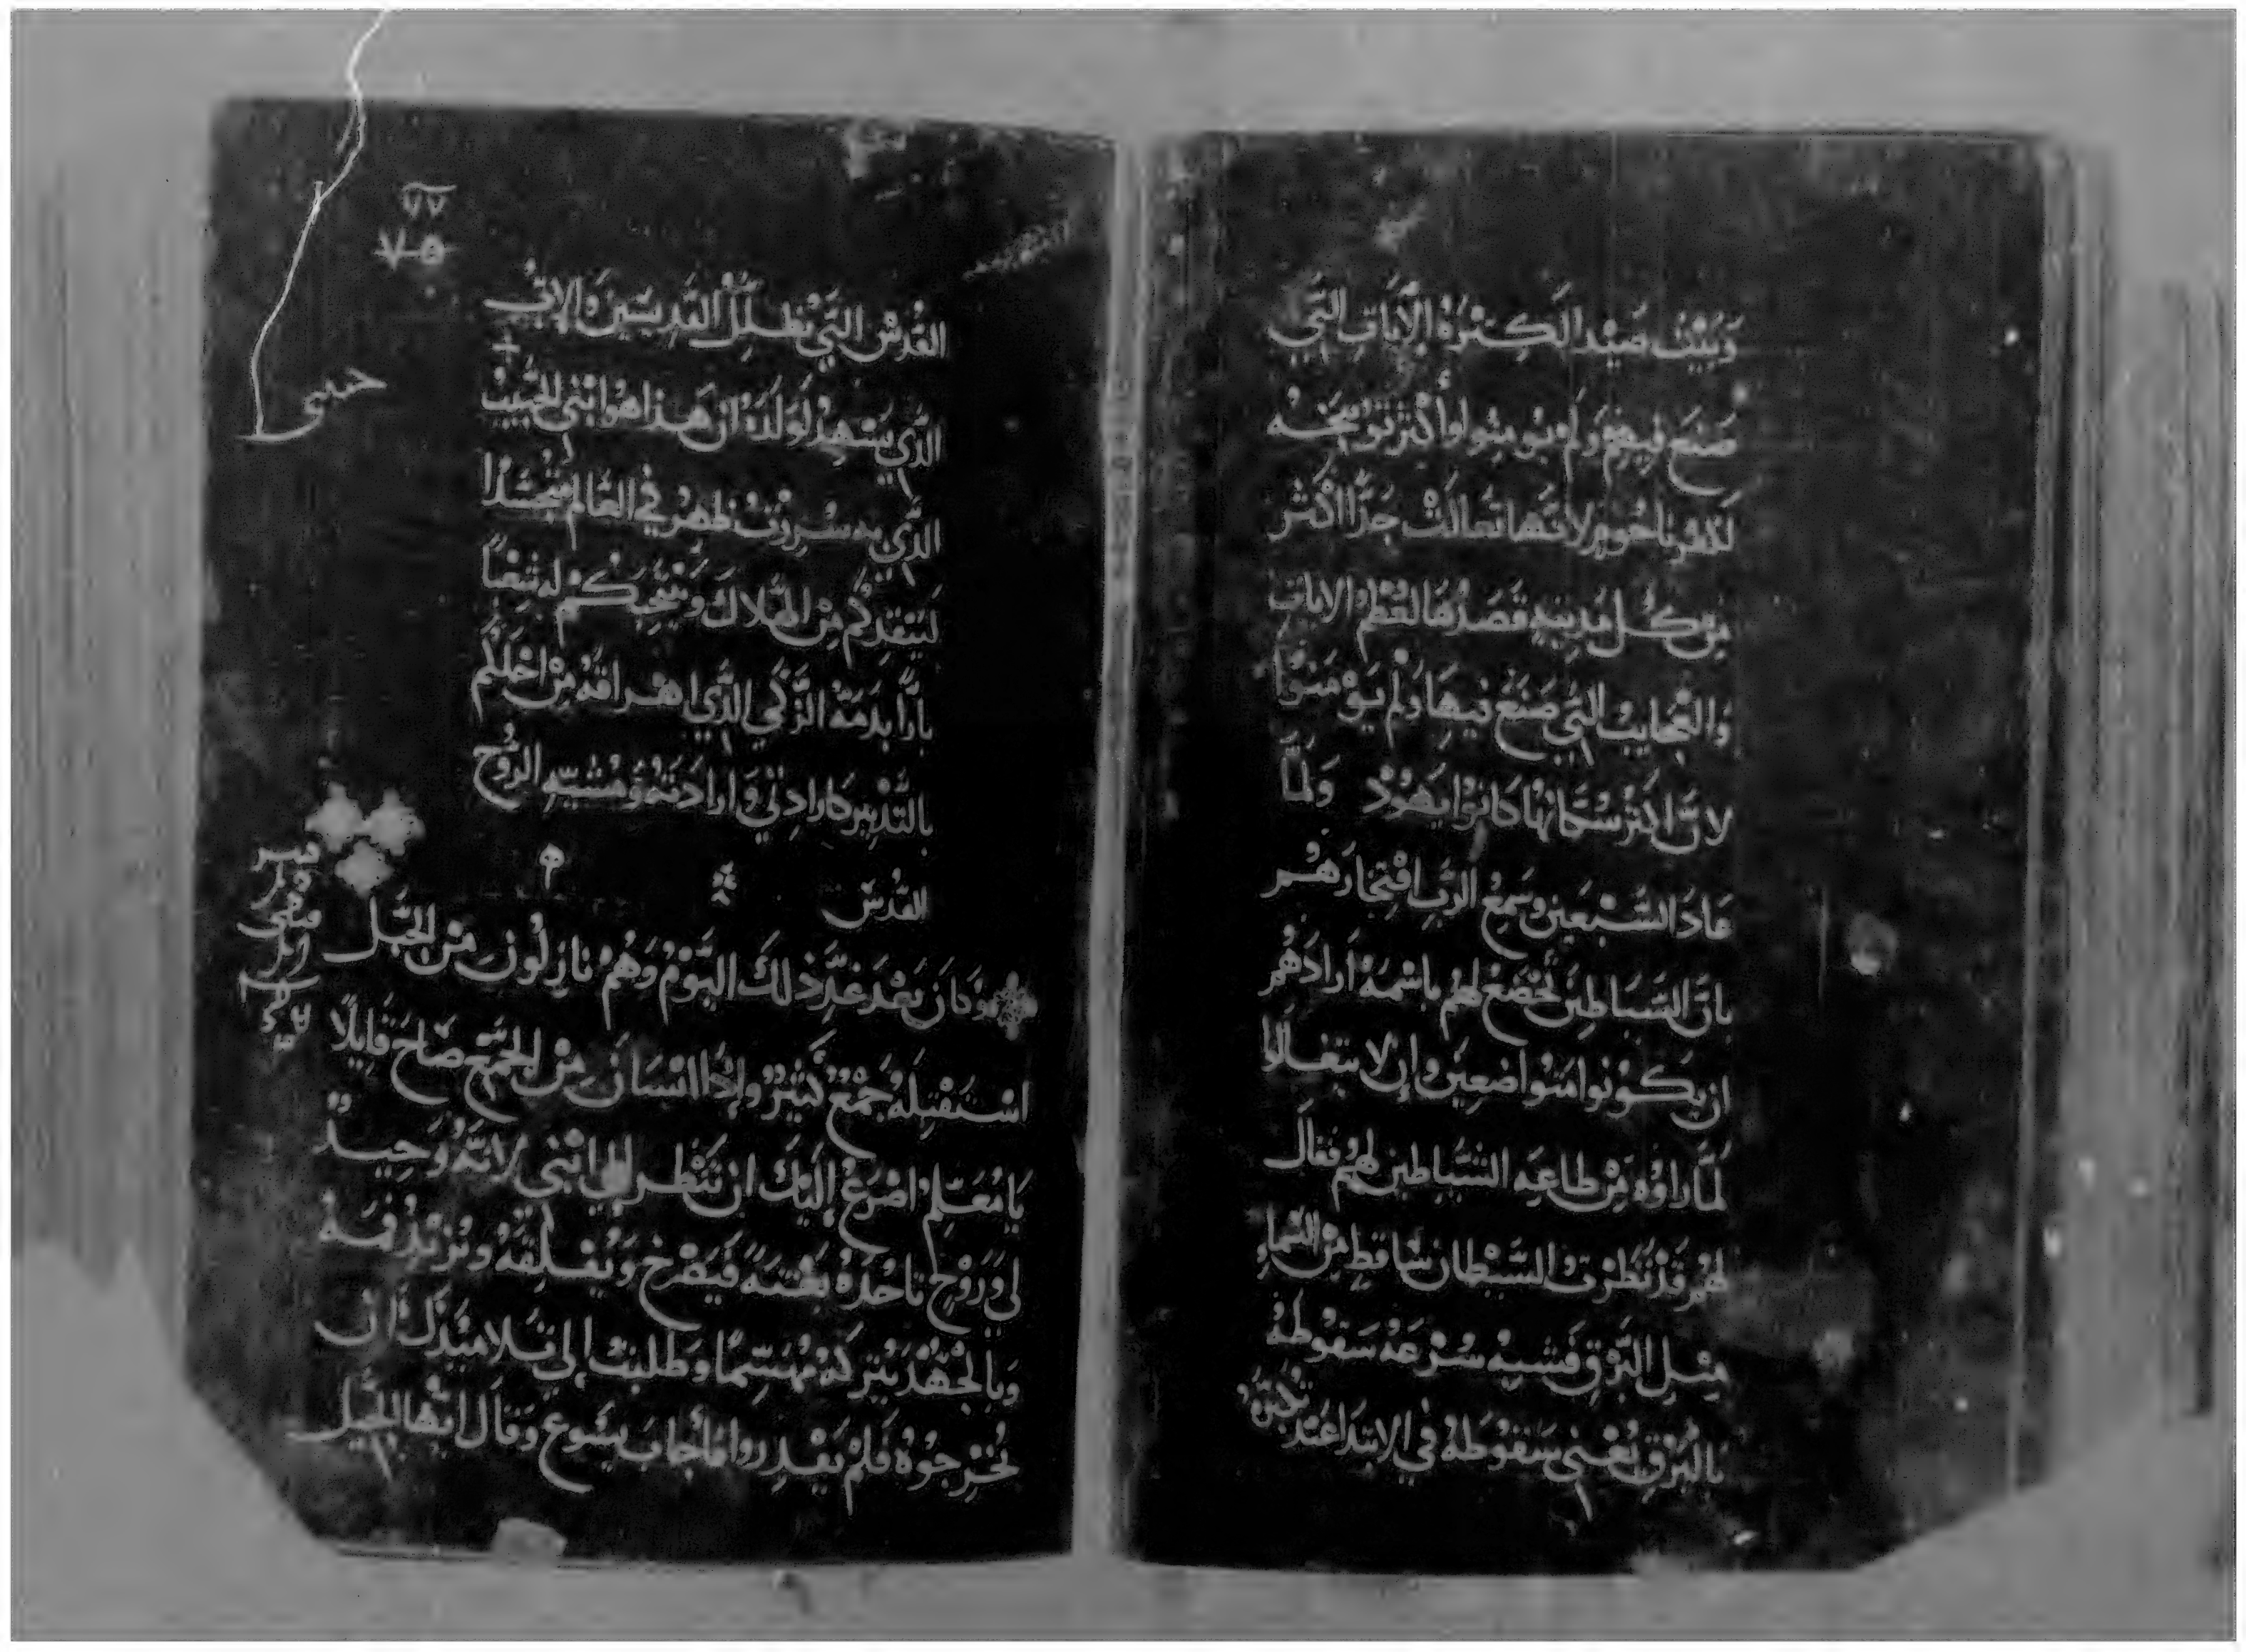 وَبَيْت صَيْدا لكِتْرَة الآيَات التَّي
صَنَعَ فِيهِم وَلَم يومنوا وأكتر توبيخه
لكفرناحوم لانها تعالت جدًّا اكثر
مِن كل مدينه قصدها لعظم الايات
وَالعجايب التي صَنَعَ فيهَا وَلم يؤمنوا
لانَّ اكتر سُكانها كانوا يَهوُدْ وَلمَّا
عَادَ السَّبْعين وسَمِعَ الرَّب افتخارَهُم
بانَّ الشَيَاطِين تَخضَع لهُم باسْمه ارَادَهُم
ان يكونوا متواضعِين وإن لا يتعالوا
لمَّا راوه مِنْ طاعَة الشَيَاطين لهُم فقال
لهُم قَدْ نَظرت الشَيْطان سَاقِط مِن السَّماء
مِتل البَرْقِ فشبه سُرْعَة سَقوُطهُ
بالبَرْقِ يعْني سَقوُطهُ في الابتدا عند تكبره
٧٧
٧٥
حسى
القُدْس التي تظلل القديسين والاب
الذَّي يَشهد لولده ان هَذا هُوَ ابْني الحبيب
الذَّي به سررت ظهر في العَالم متجسدا
لينقذكم من الهلاك وينتخبكم له شعْبًا
بارًا بدَمَهُ الزكي الذَّي اهراقه مِن اجلكم
بالتَّدبير كارادتي وَارادته ومشية الروُح
القُدْس
وَكانَ بَعْدَ غدّ ذلكَ اليَوْمُ وَهُمْ نازلُون مِنْ الجَبَل
اسْتَقبلهُ جَمْعٌ كَثيرٌ وإذا انْسَان مِنْ الجَمْعِ صَاحَ قايلًا
يَا مُعَلِم اضرَع إليْكَ ان تَنْظر إلي ابْني لانَّهُ وَحِيدٌ
لي وَروُح تاخذهُ بَغْتَةً فَيَصْرخ وَيُقلِقهُ ويُزبذ فمَه
وَبالجُهْدْ يَتركهُ مُهشمًا وَطلبت إلي تلاميذك ان
يُخْرِجُوْهُ فَلَمْ يَقدروا فأجَابَ يَسُوع وَقال ايُّها الجيل